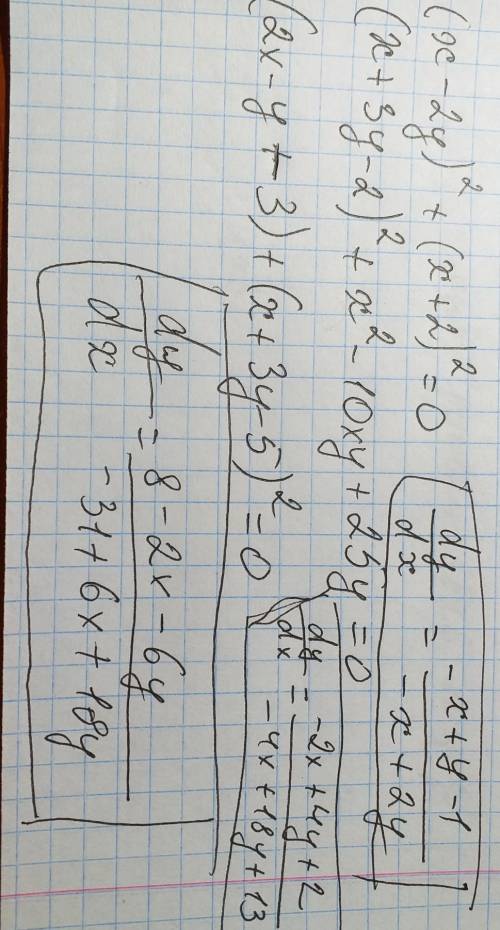 (x - 2y)² + (x + 2)² = 0
dy/dx = (-x + y - 1)/(-x + 2y)
(x + 3y - 2)² + x² - 10xy + 25y = 0
dy/dx = (-2x + 4y + 2)/(-4x + 18y + 13)
(2x - y + 3) + (x + 3y - 5)² = 0
dy/dx = (8 - 2x - 6y)/(-31 + 6x + 18y)